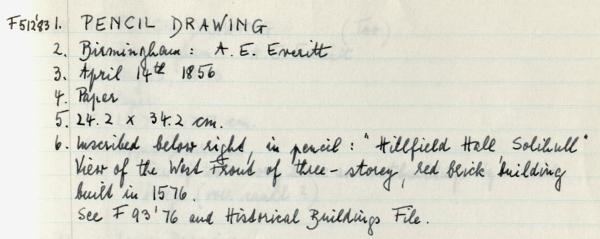 F512'83 1. PENCIL DRAWING
2. Birmingham: A. E. Everitt
3. April 14th 1856
4. Paper
5. 24.2 x 34.2 cm.
6. Inscribed below right, in pencil: "Hillfield Hall Solihull"
View of the West Front of three-storey, red brick building
built in 1576.
See F 93'76 and Historical Buildings File.